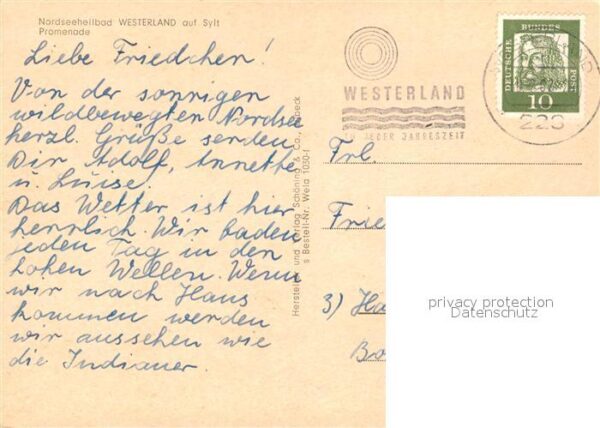 Nordseeheilbad WESTERLAND auf Sylt
Promenade
Liebe Friedchen!
Von der sonnigen
wildbewegten Nordsee
herzl. Grüße senden
Dir Adolf, Annette
u. Luise.
Das Wetter ist hier
herrlich. Wir baden
jeden Tag in den
hohen Wellen. Wenn
wir nach Haus
kommen werden
wir aussehen wie
die Indianer.
Hersteller und Verlag Schöning & Co., Lübeck
Bestell-Nr. Wela 1030-I
WESTERLAND
ZU JEDER JAHRESZEIT
DEUTSCHE BUNDES POST
10
Frl.
Frie
3) Ha
Bo
privacy protection
Datenschutz